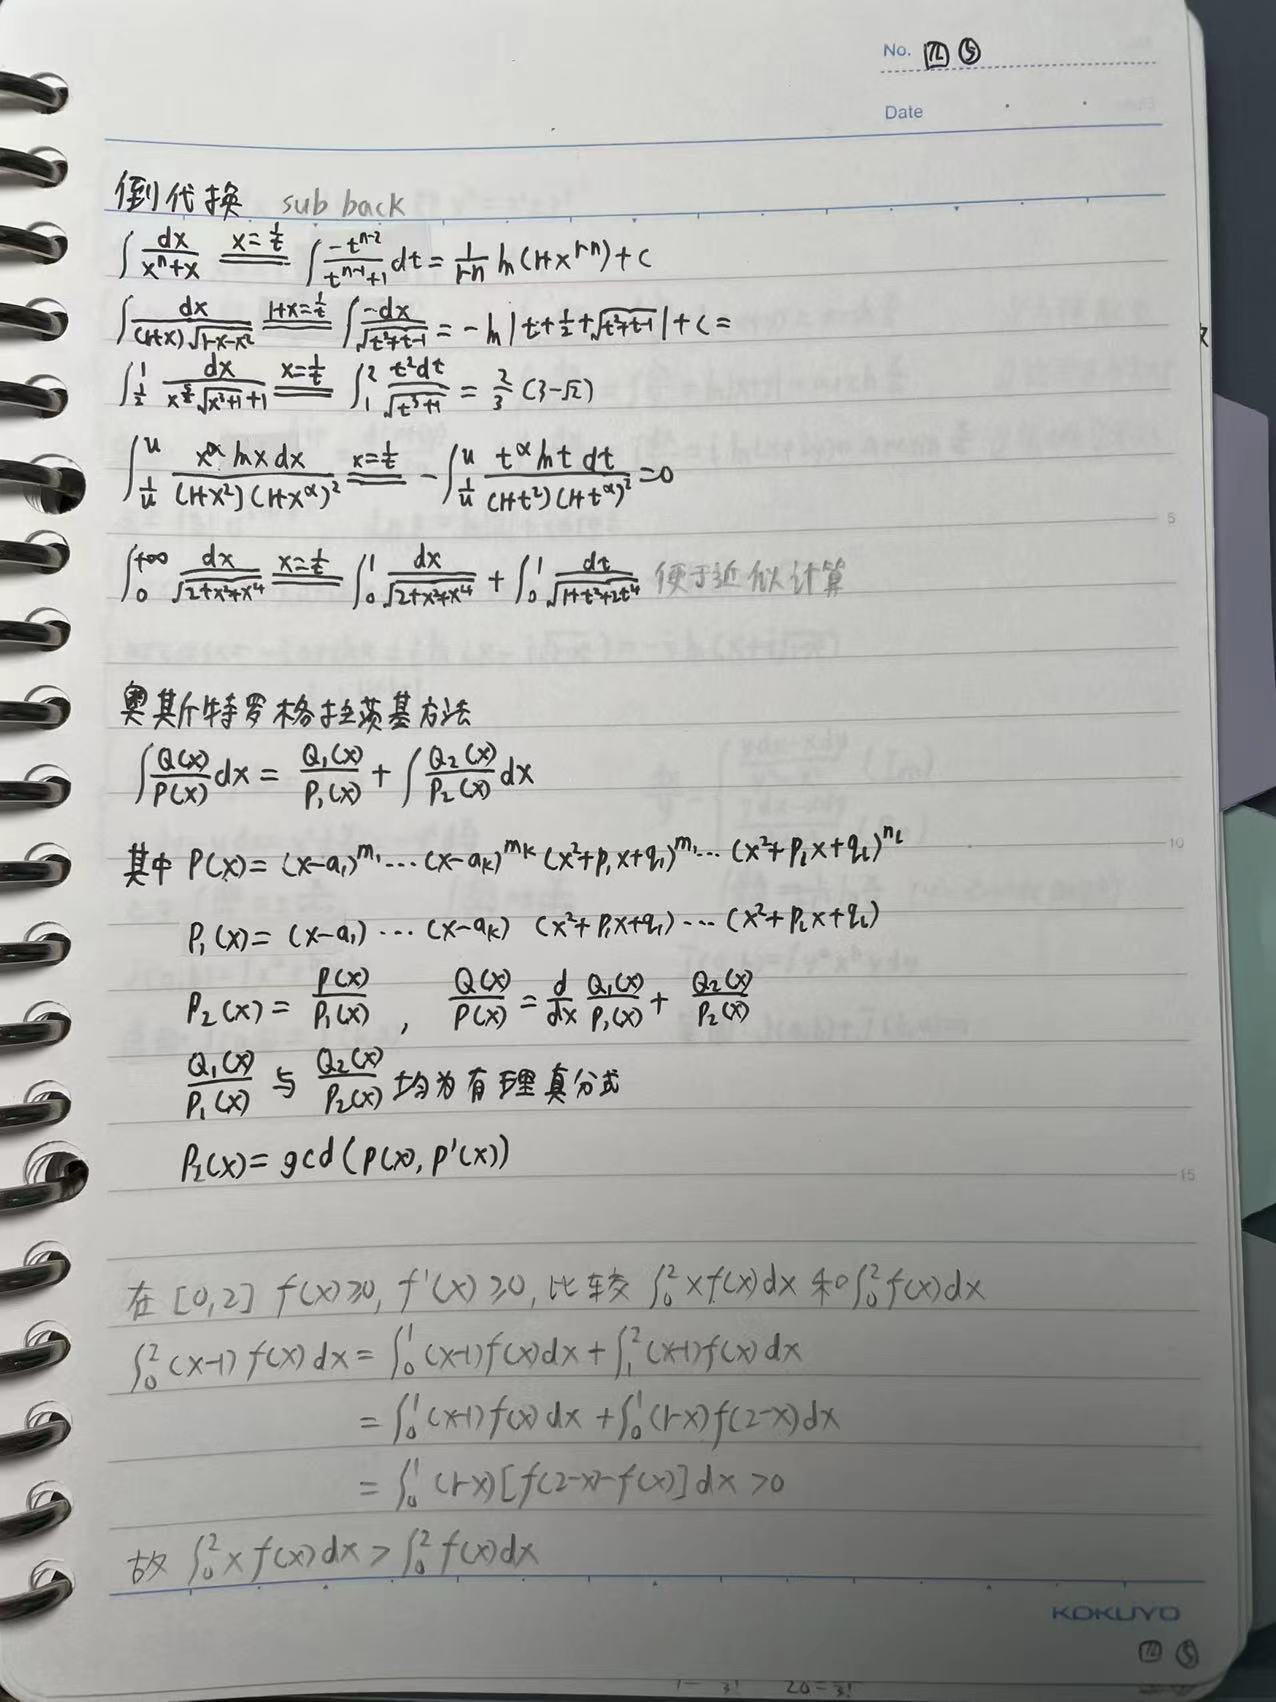 No. 四 ⑤
Date
倒代换 sub back
∫ dx/(xⁿ+x) x=1/t ∫ -tⁿ⁻²/(tⁿ⁻¹+1) dt = 1/(1-n) ln(1+x¹⁻ⁿ)+C
∫ dx/((1+x)√(1-x-x²)) 1+x=1/t ∫ -dx/√(t²+t-1) = -ln|t+1/2+√(t²+t-1)|+C=
x=1/t ∫₁² t²dt/√(t³+1) = 2/3 (3-√2)
∫_{1/u}^{u} x^α lnx dx/((1+x²)(1+x^α)²) x=1/t -∫_{1/u}^{u} t^α lnt dt/((1+t²)(1+t^α)²) =0
∫₀^{+∞} dx/√(2+x²+x⁴) x=1/t ∫₀¹ dx/√(2+x²+x⁴) + ∫₀¹ dt/√(1+t²+2t⁴) 便于近似计算
奥斯特罗格拉茨基方法
∫ Q(x)/P(x) dx = Q₁(x)/P₁(x) + ∫ Q₂(x)/P₂(x) dx
其中 P(x)= (x-a₁)^{m₁}⋯(x-a_k)^{m_k}(x²+p₁x+q₁)^{m₁}⋯(x²+p_l x+q_l)^{n_l}
P₁(x)= (x-a₁)⋯(x-a_k) (x²+p₁x+q₁)⋯(x²+p_l x+q_l)
P₂(x)= P(x)/P₁(x) , Q(x)/P(x) = d/dx Q₁(x)/P₁(x) + Q₂(x)/P₂(x)
Q₁(x)/P₁(x) 与 Q₂(x)/P₂(x) 均为有理真分式
P₂(x)= gcd(P(x), P'(x))
在[0,2] f(x)≥0, f'(x)≥0, 比较 ∫₀² xf(x)dx 和∫₀² f(x)dx
∫₀² (x-1)f(x)dx = ∫₀¹ (x-1)f(x)dx + ∫₁² (x-1)f(x)dx
= ∫₀¹ (x-1)f(x)dx + ∫₀¹ (1-x)f(2-x)dx
= ∫₀¹ (1-x)[f(2-x)-f(x)]dx >0
故 ∫₀² xf(x)dx > ∫₀² f(x)dx
KOKUYO
四 ⑤